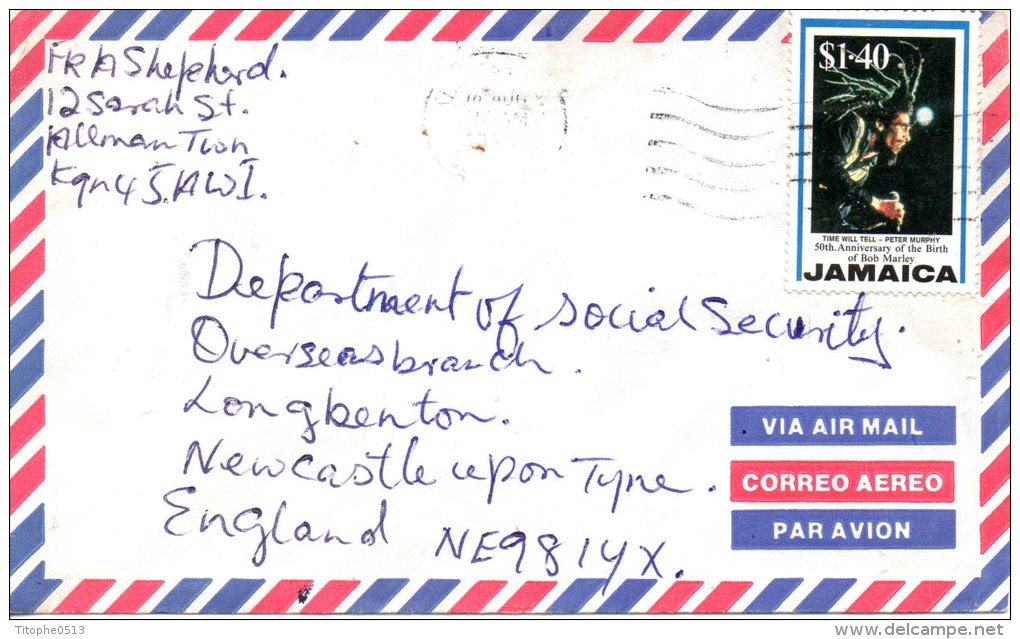 FR A Shephard.
12 Sarah St.
Allman Twn
Kgn 4 J.A W I.
10 AUG
$1.40
TIME WILL TELL - PETER MURPHY
50th. Anniversary of the Birth
of Bob Marley
JAMAICA
Department of social Security.
Overseas branch.
Longbenton.
Newcastle upon Tyne.
England NE98 1YX.
VIA AIR MAIL
CORREO AEREO
PAR AVION
Titophe0513
delcampe.net